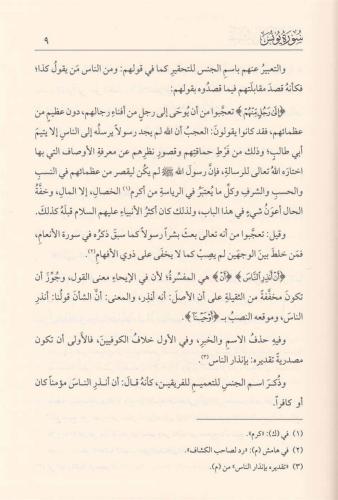 سُورَةُ يُونُسَ
٩
والتعبيرُ عنهم باسمِ الجنس للتحقيرِ كما في قولهم: ومن الناس مَن يقول كذا؛
فكأنه قصدَ مقابلَتَهم فيما قصدُوه بقولهم:
﴿إِلَىٰ رَجُلٍ مِّنْهُمْ﴾ تعجَّبوا من أن يُوحَى إلى رجلٍ من أفناءِ رجالهم، دون عظيمٍ من
عظمائهم، فقد كانوا يقولونَ: العجبُ أن الله لم يجد رسولاً يرسلُه إلى الناسِ إلا يتيمَ
أبي طالبٍ؛ وذلك من فَرْطِ حماقتِهم وقصورِ نظرِهم عن معرفةِ الأوصاف التي بها
اختارَه اللهُ تعالى للرسالةِ، فإنَّ رسولَ الله ﷺ لم يكن ليقصر من عظمائهم في النسب
والحسبِ والشرفِ وكلِّ ما يُعتبَرُ في الرياسةِ من أكرمِ(١) الخصالِ، إلا المال، وخفَّةُ
الحال أعوَنُ شيءٍ في هذا الباب، ولذلك كان أكثرُ الأنبياءِ عليهم السلام قبلَهُ كذلك.
وقيل: تعجَّبوا من أنه تعالى بعثَ بشراً رسولاً كما سبقَ ذكرُه في سورة الأنعامِ،
فمَن خلطَ بينَ الوجهَينِ لم يصِبْ كما لا يخفَى على ذوي الأفهامِ(٢).
﴿أَنْ أَنذِرِ النَّاسَ﴾ ﴿أَنْ﴾ هي المفسِّرةُ؛ لأن في الإيحاءِ معنى القول، وجُوِّزَ أن
تكونَ مخفَّفةً من الثقيلةِ على أن الأصلَ: أنه أنذِر، والمعنى: أنَّ الشأنَ قولُنا: أنذرِ
الناسَ، وموقعه النصبُ بـ ﴿أَوْحَيْنَا﴾.
وفيه حذفُ الاسمِ والخبرِ، وفي الأول خلافُ الكوفيين، فالأَولى أن تكون
مصدريةً تقديرُه: بإنذار الناسِ(٣).
وذُكرَ اسم الجنس للتعميمِ للفريقَينِ، كأنهُ قالَ: أن أنذرِ الناسَ مؤمناً كان
أو كافراً.
(١) في (ك): «كرم».
(٢) في هامش (م): «رد لصاحب الكشاف».
(٣) «تقديره بإنذار الناس» من (م).